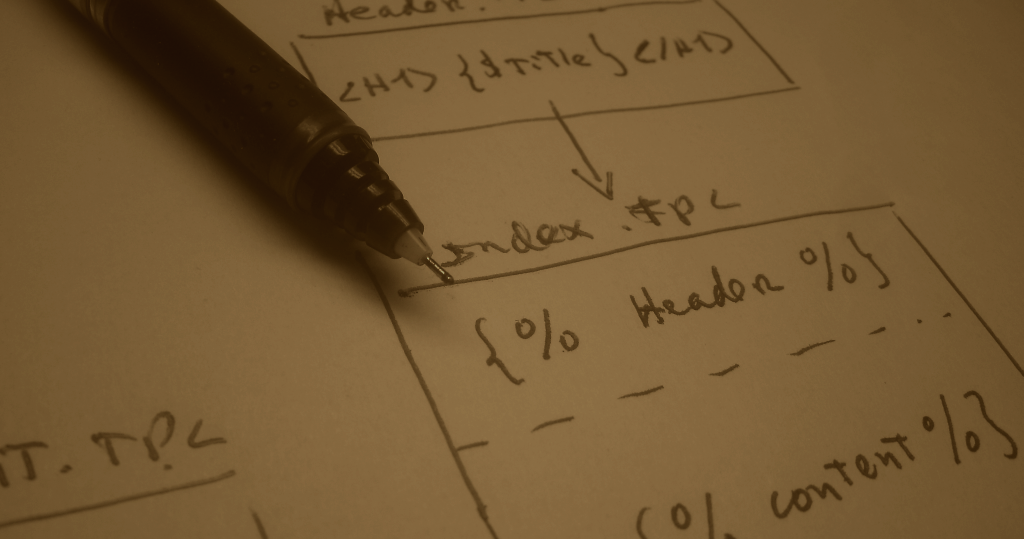 Header.
<H1> {$Title} </H1>
Index.TPL
{% Header %}
{% content %}
T.TPL